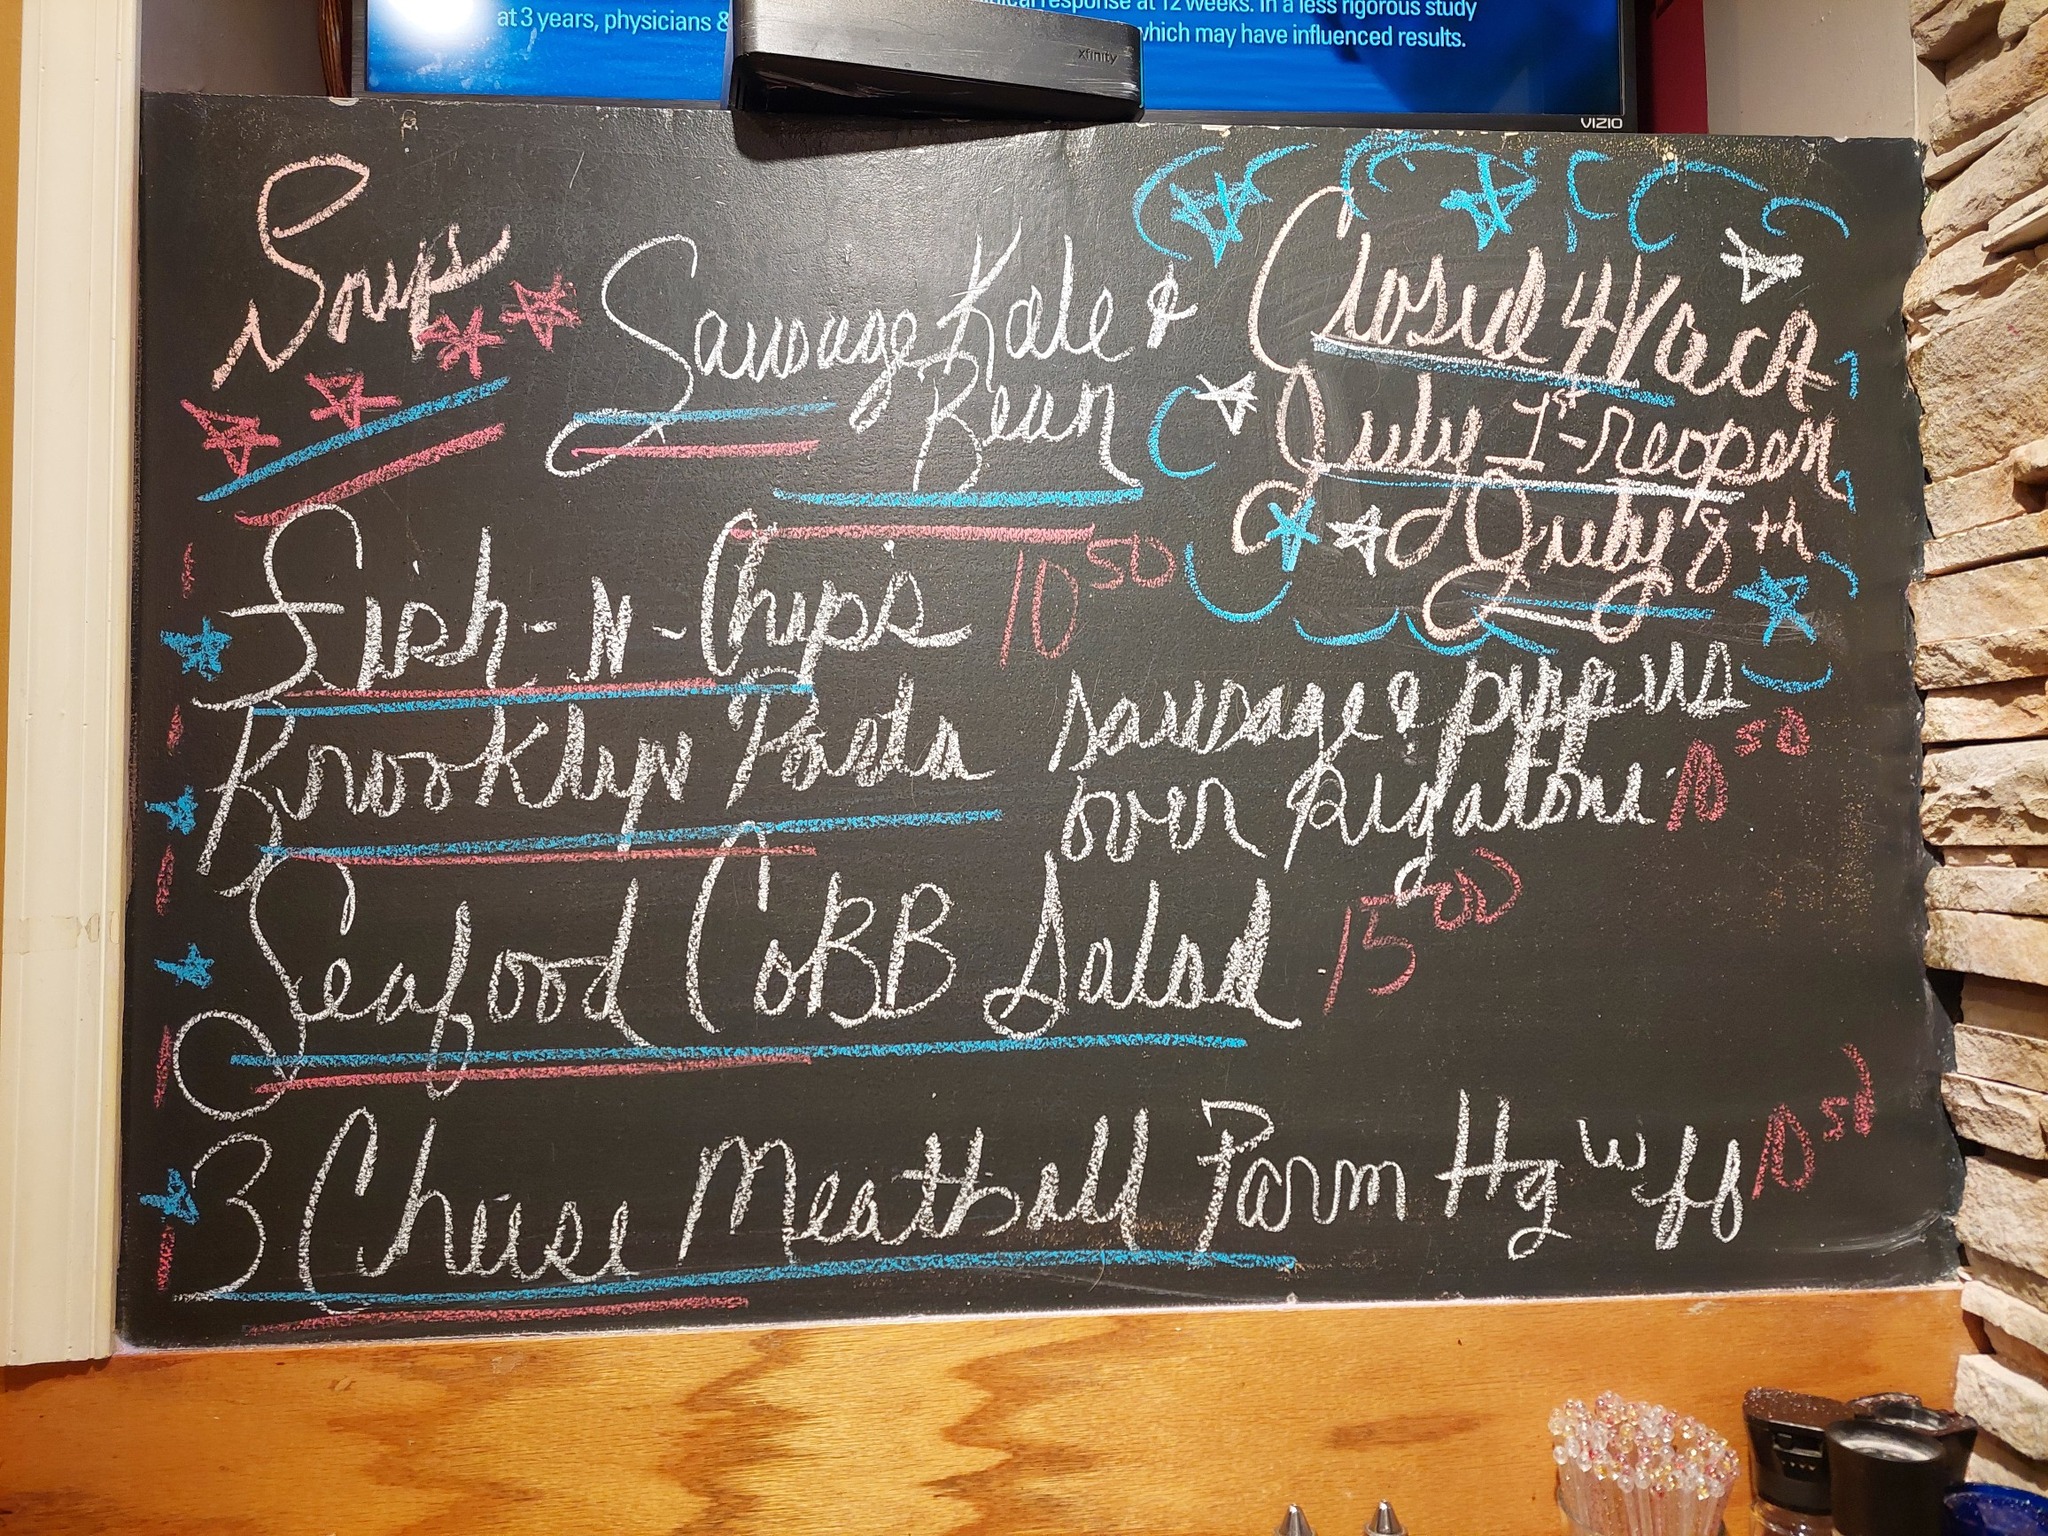 at 3 years, physicians &
ical response at 12 weeks. In a less rigorous study
which may have influenced results.
xfinity
VIZIO
Soups
Sausage Kale &
Bean
Closed 4 Vaca
July 1st - reopen
July 8th
Fish-N-Chips 10 50
Brooklyn Pasta sausage & peppers
over rigatoni 10 50
Seafood CoBB Salad 15 00
3 Cheese Meatball Parm Hg w ff 10 50